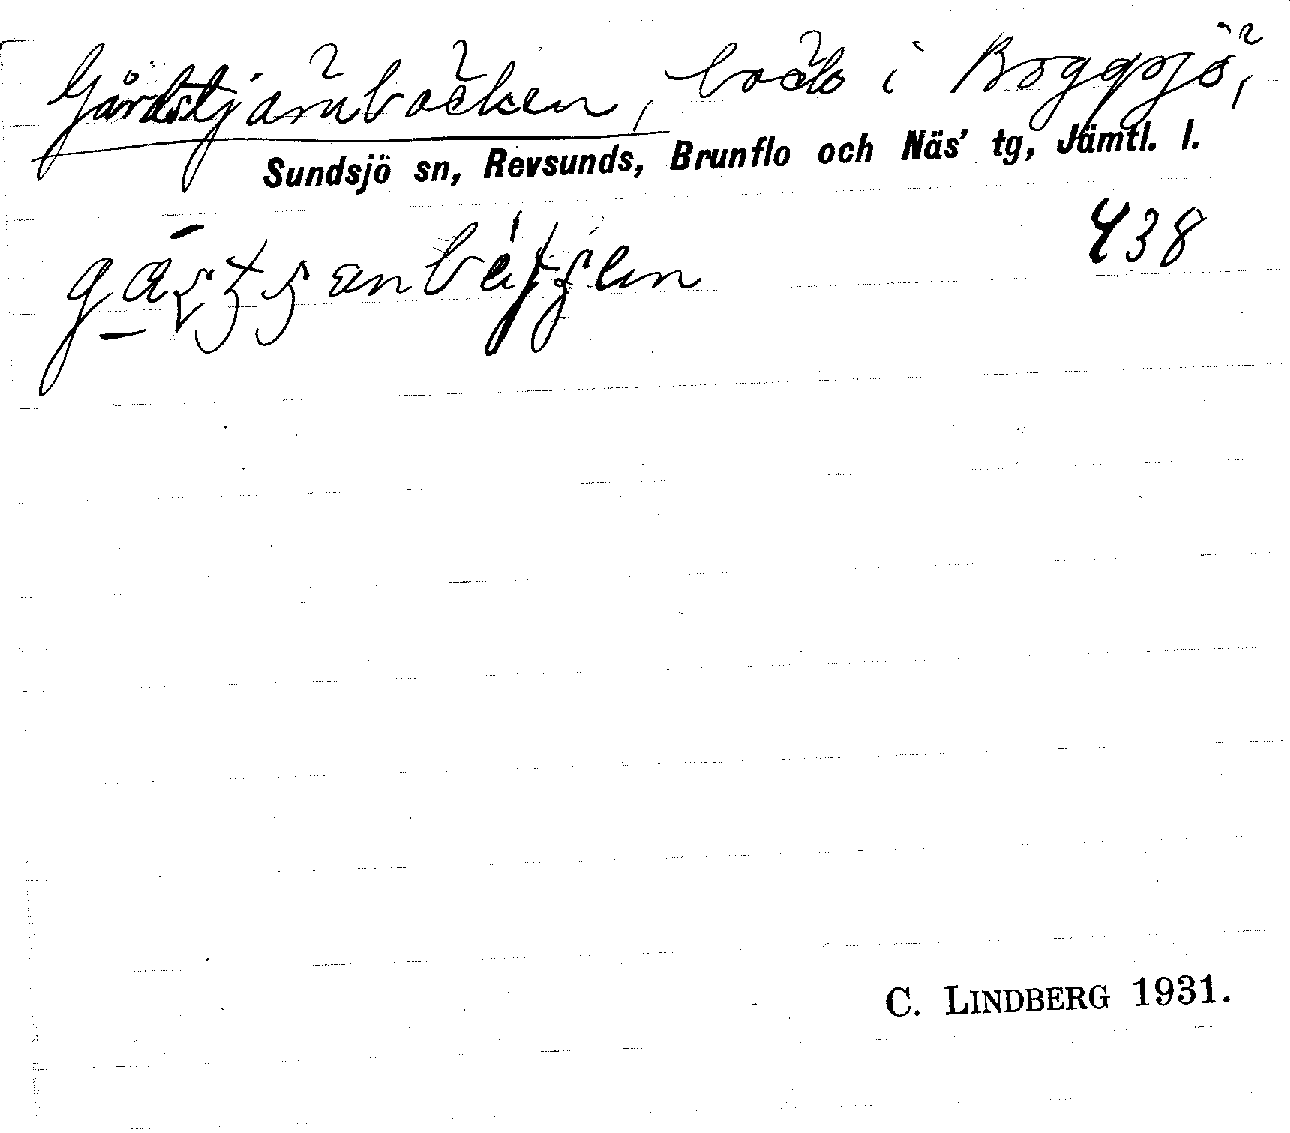 Gårdstjärnbäcken, bäck i Boggsjö,
Sundsjö sn, Revsunds, Brunflo och Näs' tg, Jämtl. l.
438
C. LINDBERG 1931.